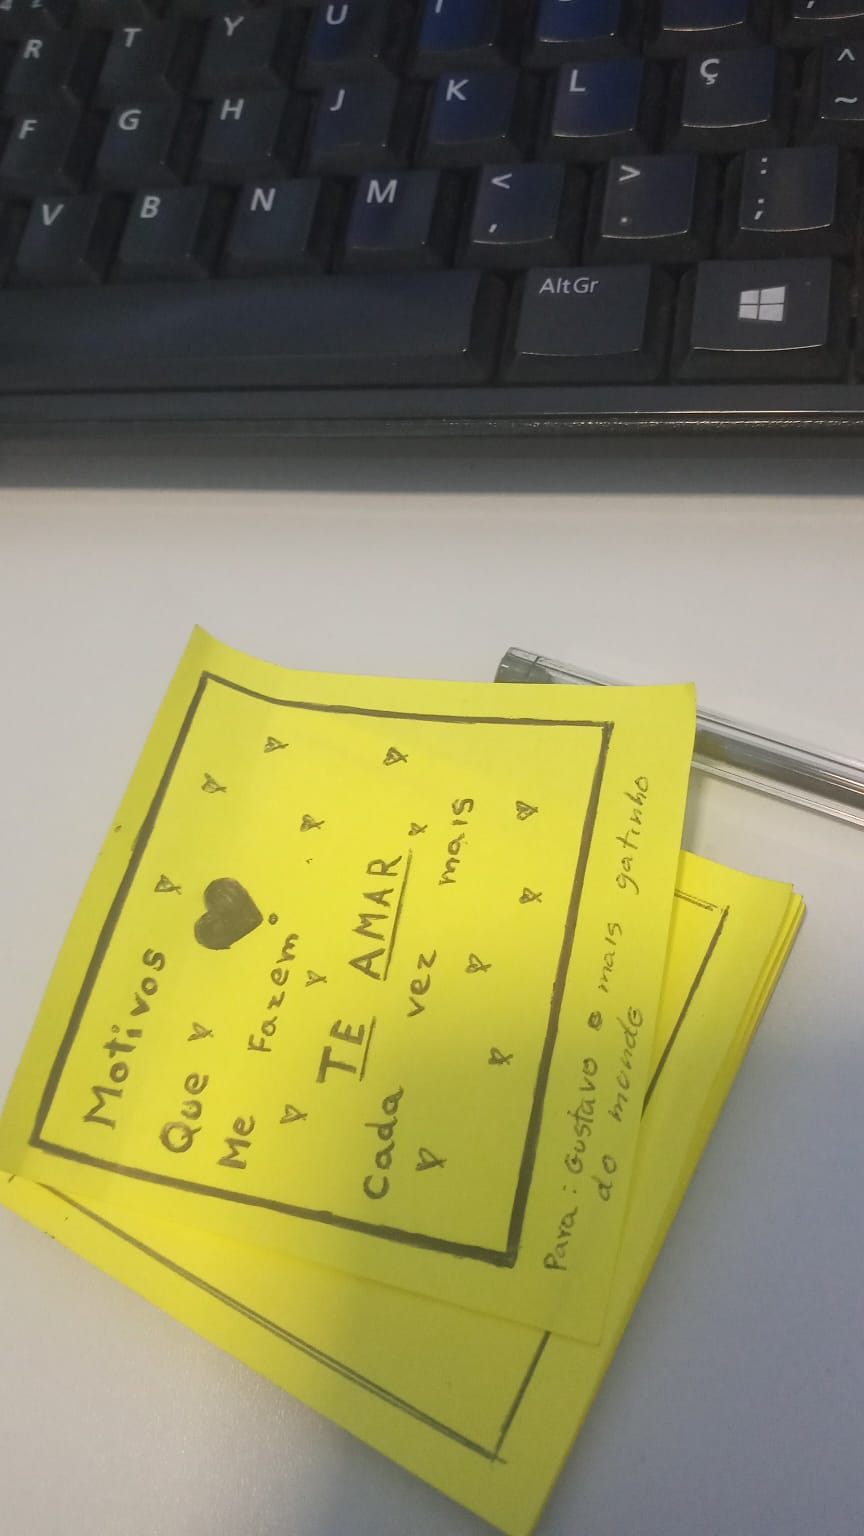 U
R T Y
F G H J K L Ç ^ ~
V B N M < , > . : ;
AltGr
Motivos
Que
Me Fazem
TE AMAR
Cada vez mais
Para: Gustavo o mais gatinho
do mundo